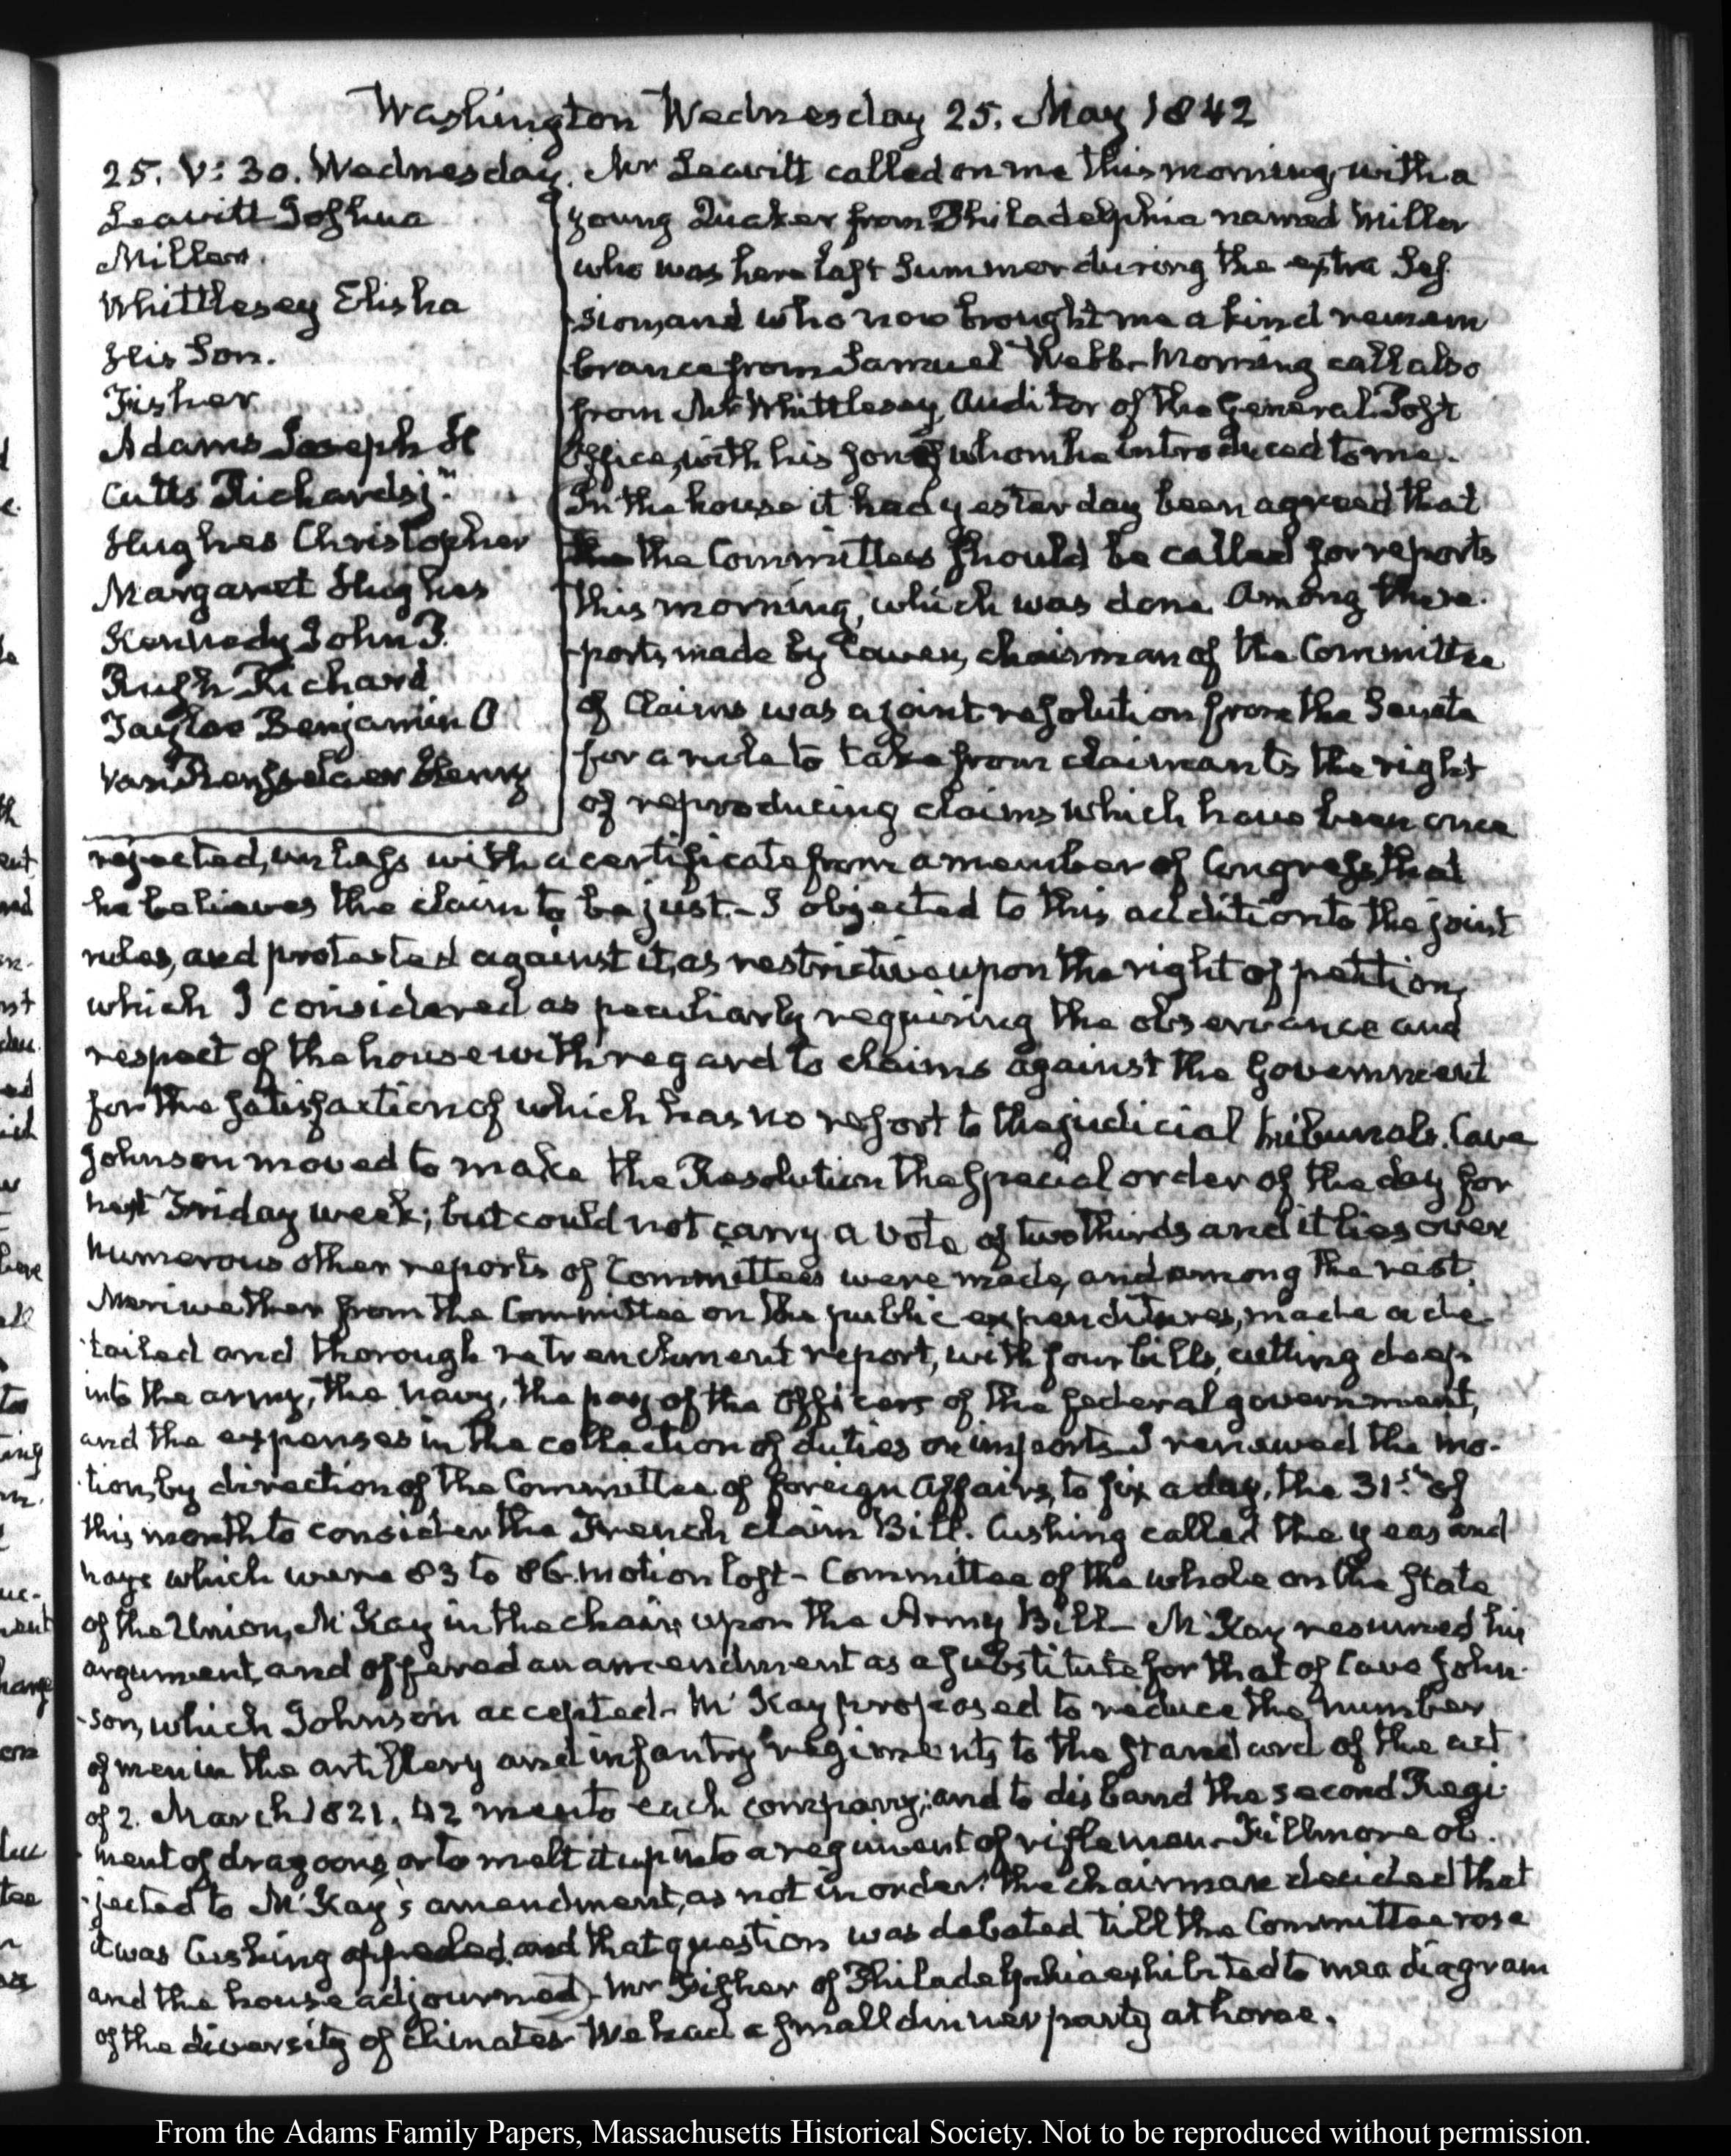 Washington Wednesday 25. May 1842
25. V: 30. Wednesday.
Leavitt Joshua
Miller.
Whittlesey Elisha
His Son.
Fisher
Adams Joseph H
Cutts Richard jr.
Hughes Christopher
Margaret Hughes
Kennedy John P.
Rush Richard
Tayloe Benjamin O
Van Rensselaer Henry
Mr Leavitt called on me this morning, with a
young Quaker from Philadelphia named Miller
who was here last Summer during the extra Ses-
-sion, and who now brought me a kind remem
brance from Samuel Webb. Morning call also
from Mr Whittlesey, Auditor of the General Post
Office, with his son whom he introduced to me.
In the house it had yesterday been agreed that
the the Committees should be called for reports
this morning, which was done. Among the re-
-ports made by Cowen, chairman of the Committee
of Claims was a joint resolution from the Senate
for a rule to take from claimants the right
of reproducing claims which have been once
rejected, unless with a certificate from a member of Congress that
he believes the claim to be just. - I objected to this addition to the joint
rules, and protested against it, as restrictive upon the right of petition,
which I considered as peculiarly requiring the observance and
respect of the house with regard to claims against the Government
for the satisfaction of which has no resort to the judicial tribunals. Cave
Johnson moved to make the Resolution the special order of the day for
next Friday week; but could not carry a vote of two thirds and it lies over
Numerous other reports of Committees were made, and among the rest.
Meriwether from the Committee on the public expenditures, made a de-
-tailed and thorough retrenchment report, with four bills, cutting deep
into the army, the navy, the pay of the officers of the federal government,
and the expenses in the collection of duties on imports. I renewed the mo-
-tion, by direction of the Committee of foreign Affairs, to fix a day, the 31st of
this month to consider the French claim Bill. Cushing called the yeas and
nays which were 83 to 86. motion lost - Committee of the whole on the state
of the Union, McKay in the chair, upon the Army Bill - McKay resumed his
argument, and offered an amendment as a substitute for that of Cave John-
-son, which Johnson accepted - McKay proposed to reduce the number
of men in the artillery and infantry regiments, to the standard of the act
of 2. March 1821. 42 men to each company; and to disband the second Regi-
-ment of dragoons, or to melt it up into a regiment of riflemen. Fillmore ob-
-jected to McKay's amendment, as not in order. The chairman decided that
it was Cushing appealed, and that question was debated till the Committee rose
and the house adjourned - Mr Fisher of Philadelphia exhibited to me a diagram
of the diversity of climates. We had a small dinner party at home.
From the Adams Family Papers, Massachusetts Historical Society. Not to be reproduced without permission.